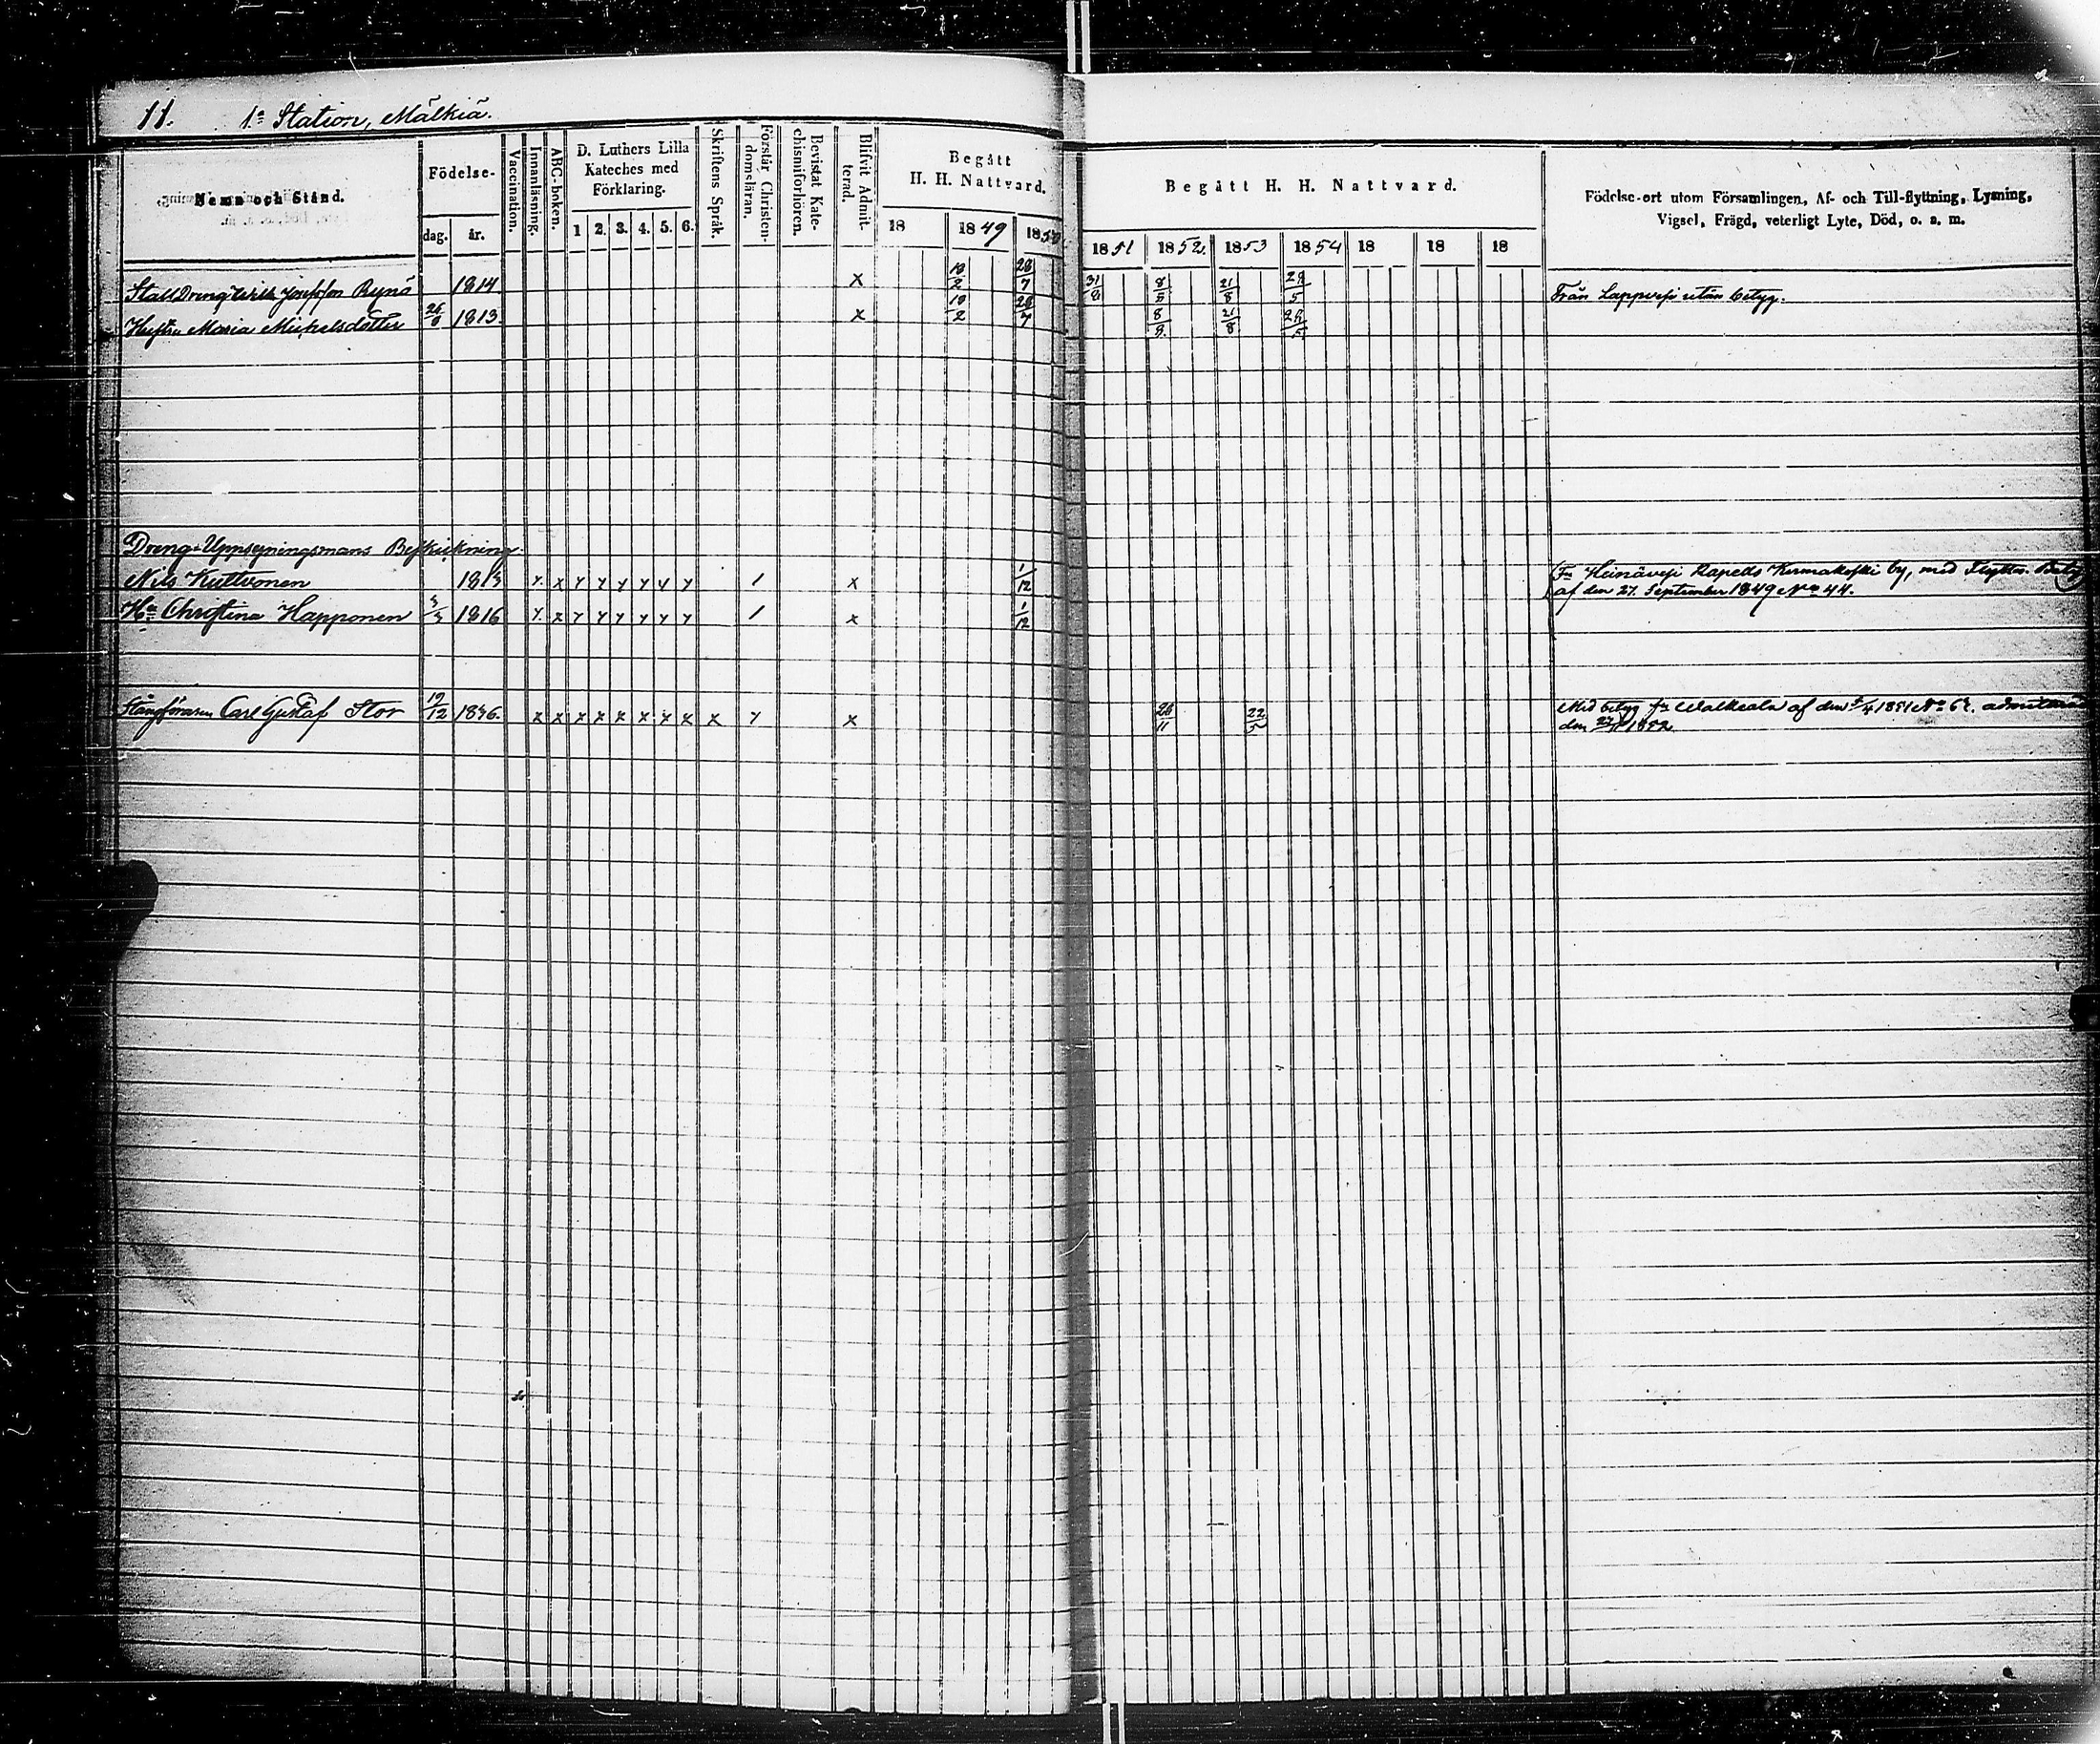 11. 1:a Station, Mälkiä.
Namn och Stånd.
Födelse-
dag. år.
Vaccination.
Innanläsning.
ABC-boken.
D. Luthers Lilla
Kateches med
Förklaring.
1 2. 3. 4. 5. 6.
Skriftens Språk.
Förstår Christen-
domsläran.
Bevistat Kate-
chismiförhören.
Blifvit Admit-
terad.
Begått
H. H. Nattvard.
18 1849 1850
Begått H. H. Nattvard.
1851 1852. 1853 1854 18 18 18
Födelse-ort utom Församlingen, Af- och Till-flyttning, Lysning,
Vigsel, Frägd, veterligt Lyte, Död, o. s. m.
StallDreng Josefsson 1814 x 10/2 28/7 31/8 8/5 21/8 28/5 Från Lappvesi utan betyg.
Hustru Maria Michelsdotter 1813. x 10/2 28/7 8/5. 21/8 28/5
Dreng Uppsyningsmans
Nils Kuttvonen 1813 x x x x x x x x / x 1/12 Fr. Heinävesi Kapells Kermakoski by, med Flyttn. Betyg
af den 27. September 1849 No 44.
Hu Christina Happonen 3/3 1816 x x x x x x x x / x 1/12
Stångföraren Carl Gustaf Stor 19/12 1836. x x x x x x x x x x x 28/11 22/5 Med betyg fr Walkeala af den 5/4 1851 No 62. admitterad
den 1852